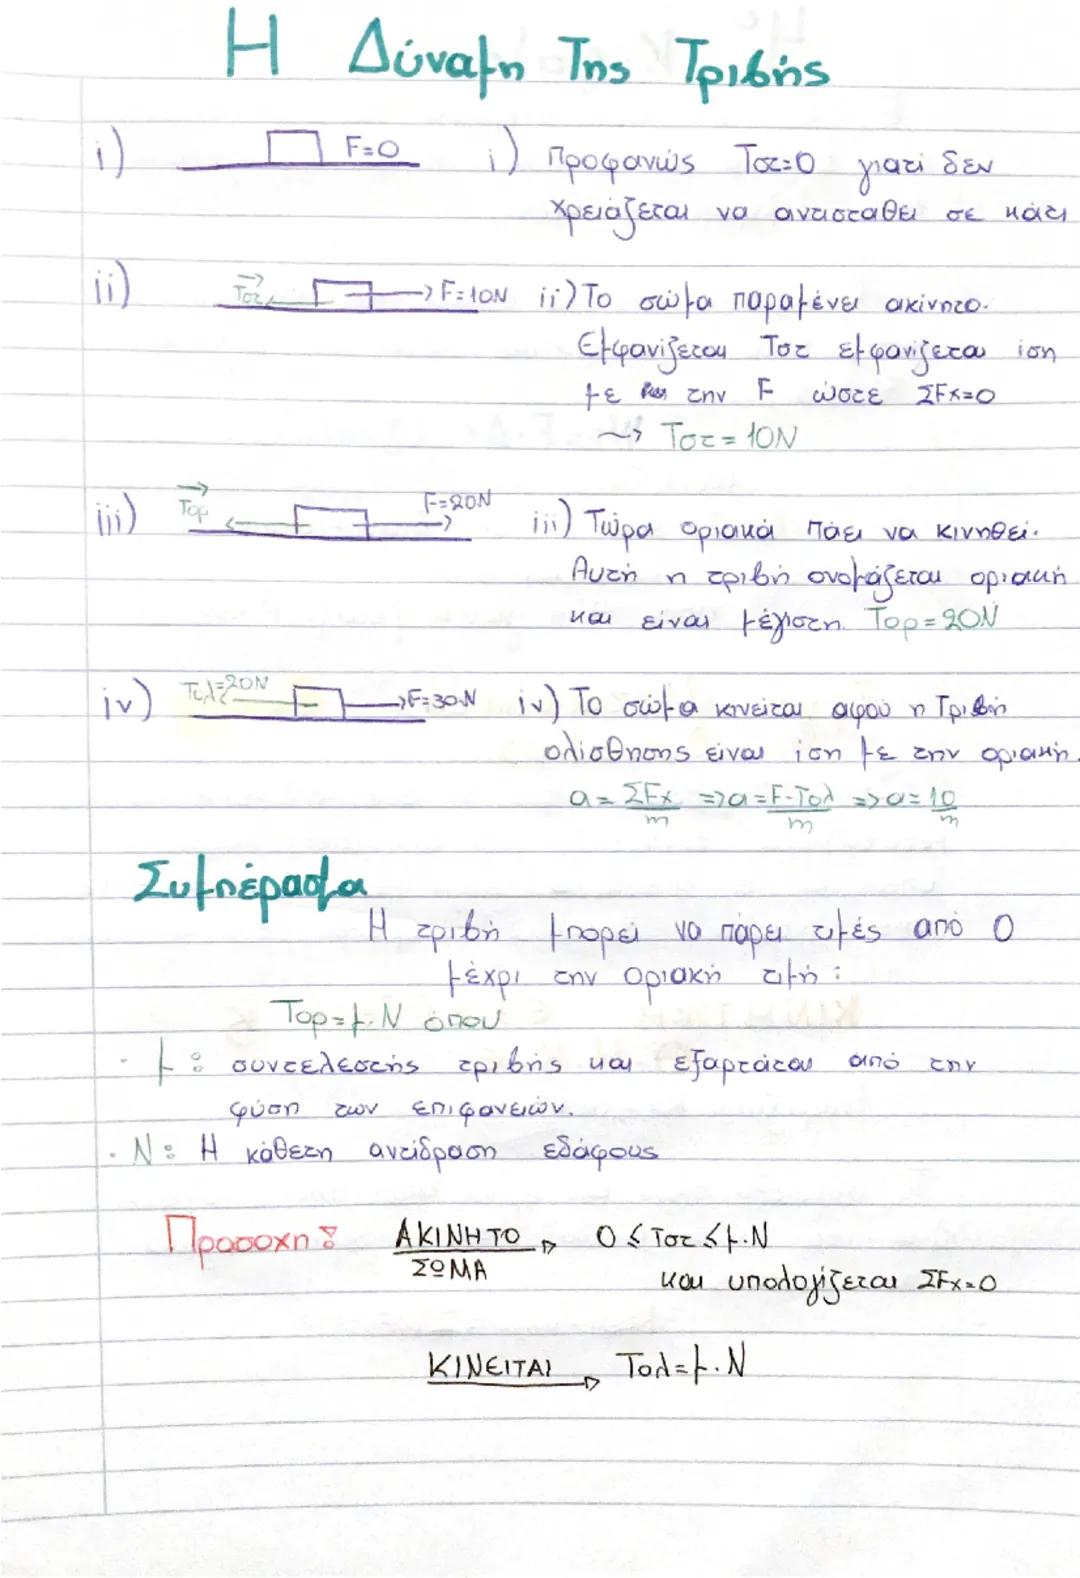 Η Δύναμη Της Τριβής
i) F=0 i) Προφανώς Τστ=0 γιατί δεν
χρειάζεται να αντισταθεί σε κάτι
ii) Τστ F=10N ii) Το σώμα παραμένει ακίνητο.
Εμφανίζεται Τστ εμφανίζεται ίση
με την F ώστε ΣFx=0
~> Τστ = 10N
iii) Τορ F=20N iii) Τώρα οριακά πάει να κινηθεί.
Αυτή η τριβή ονομάζεται οριακή
και είναι μέγιστη. Τορ=20N
iv) Τολ=20N F=30N iv) Το σώμα κινείται αφού η Τριβή
ολίσθησης είναι ίση με την οριακή.
a = ΣFx/m => a = F-Τολ/m => a = 10/m
Συμπέρασμα
Η τριβή μπορεί να πάρει τιμές από 0
μέχρι την οριακή τιμή:
Τορ=μ.N όπου
· μ: συντελεστής τριβής και εξαρτάται από την
φύση των επιφανειών.
· N: Η κάθετη αντίδραση εδάφους
Προσοχη: ΑΚΙΝΗΤΟ → 0 ≤ Τστ ≤ μ.N
ΣΩΜΑ και υπολογίζεται ΣFx=0
ΚΙΝΕΙΤΑΙ → Τολ=μ.N